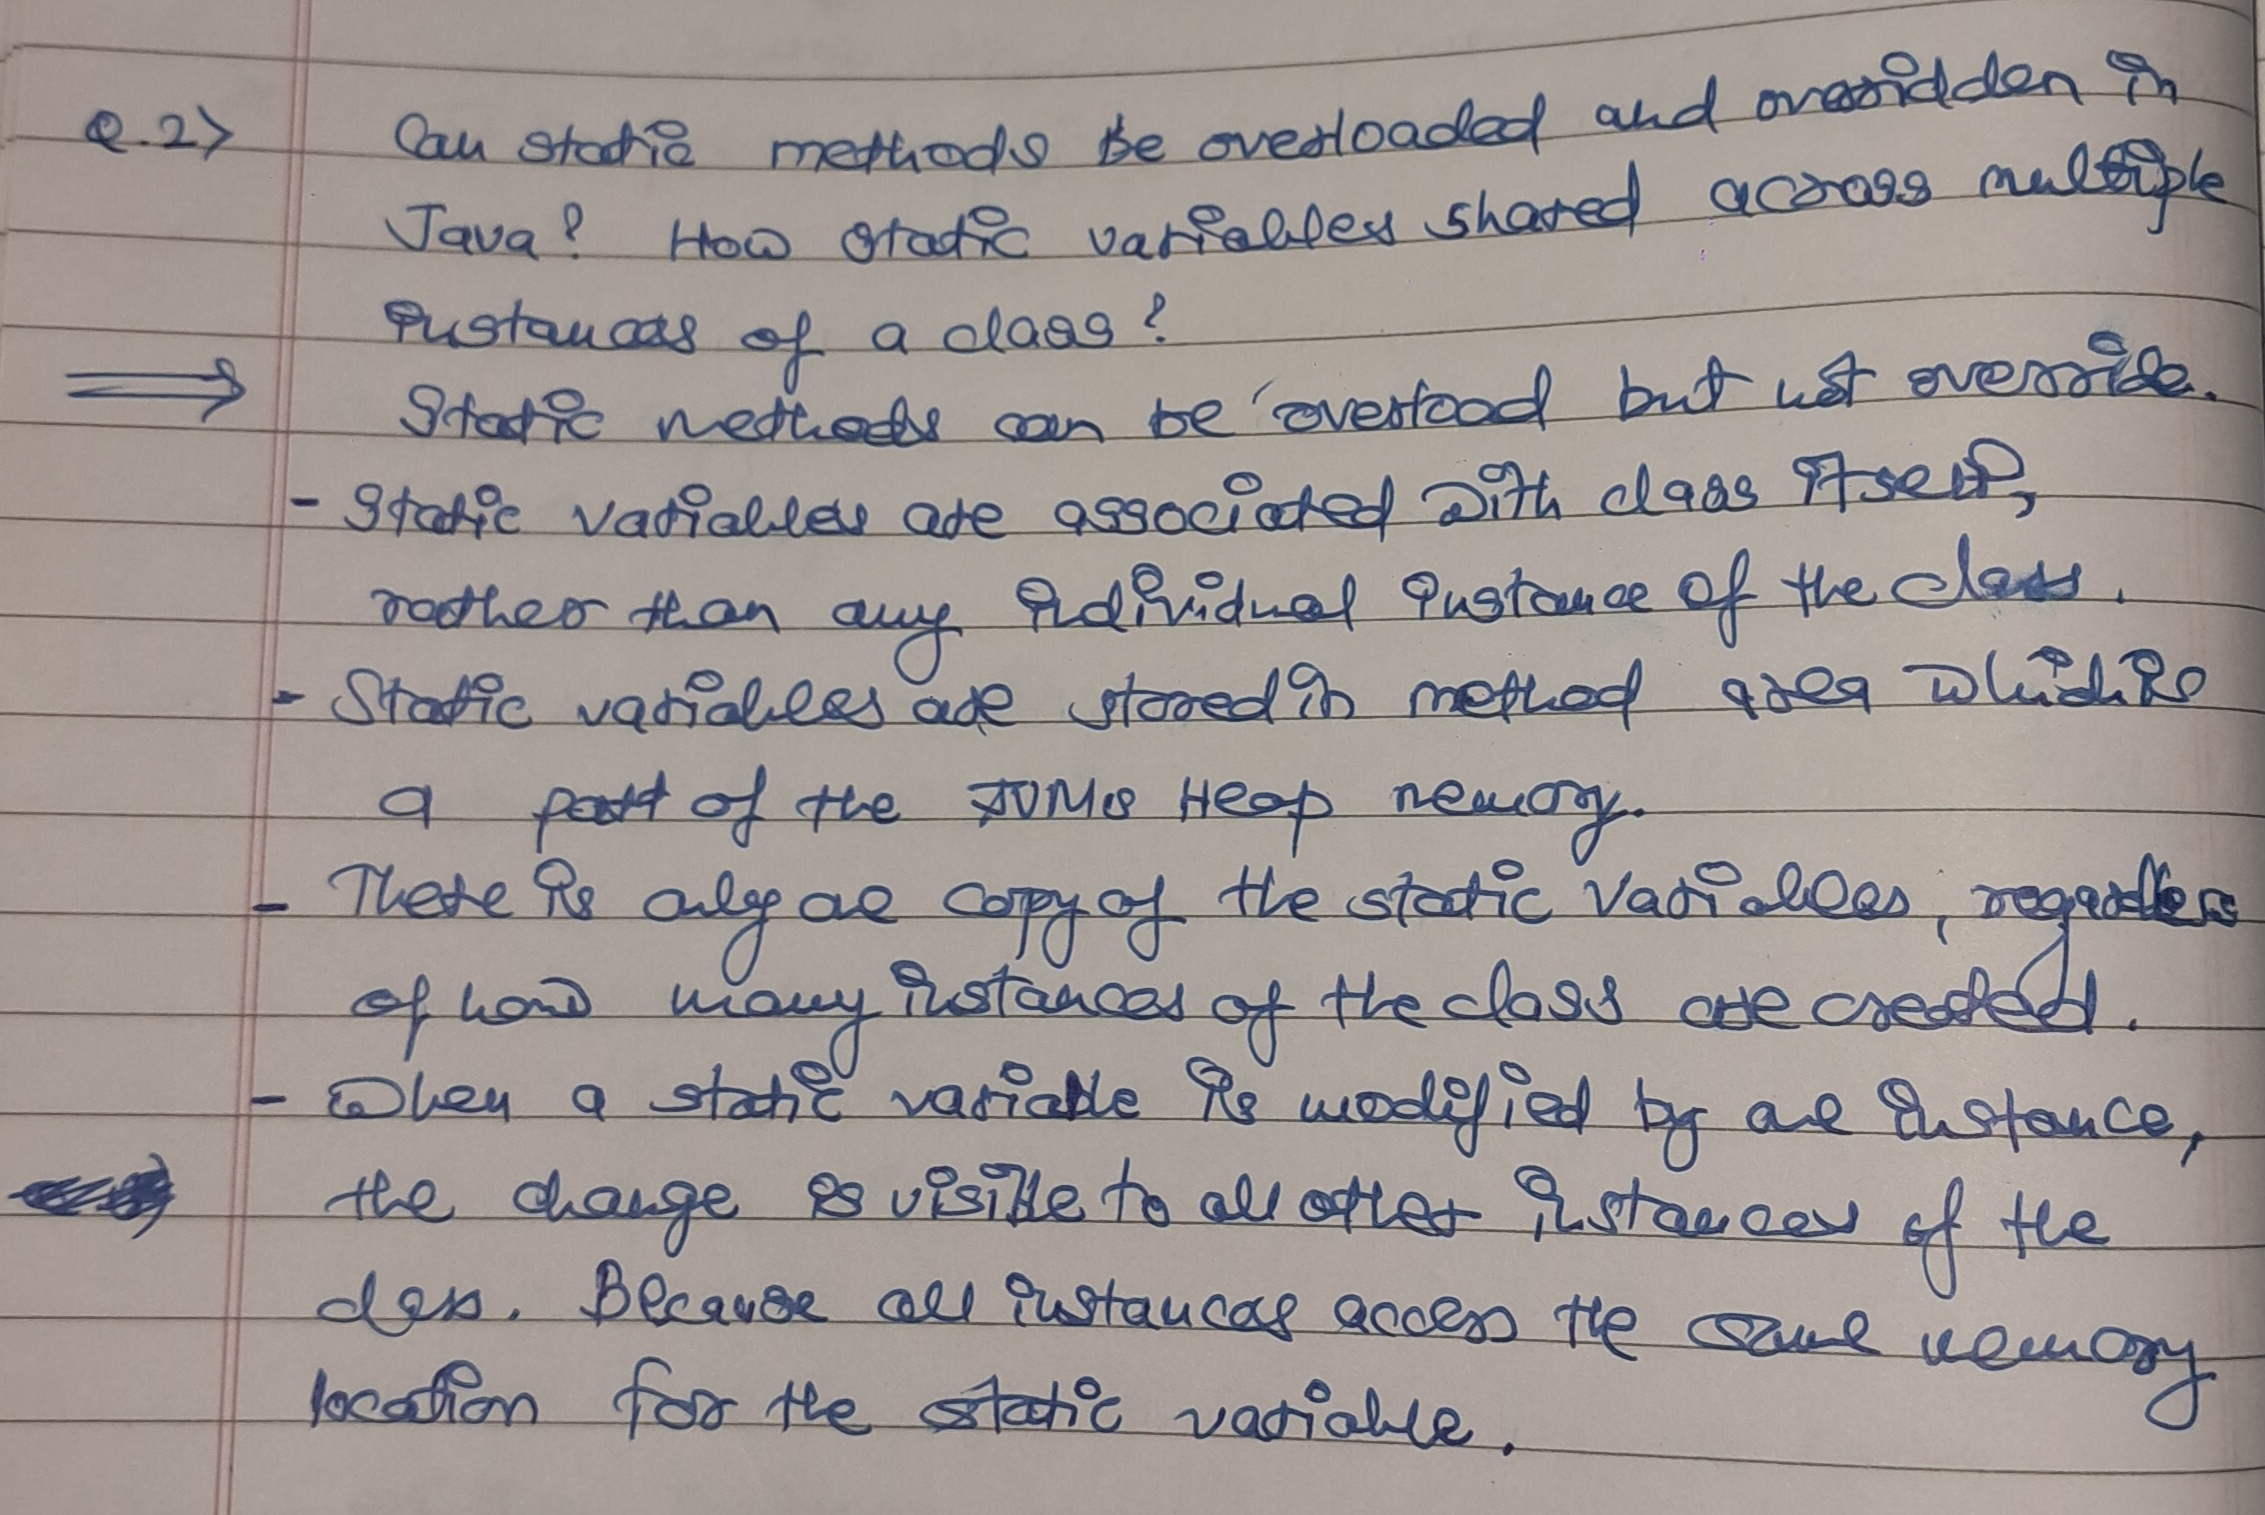 Q.2> Can static methods be overloaded and overridden in
Java? How static variables shared across multiple
instances of a class?
⇒ Static methods can be overload but not override.
- Static variables are associated with class itself,
rather than any individual instance of the class.
- Static variables are stored in method area which is
a part of the JVMs Heap memory.
- There is only one copy of the static variables, regardless
of how many instances of the class are created.
- When a static variable is modified by one instance,
the change is visible to all other instances of the
class. Because all instances access the same memory
location for the static variable.